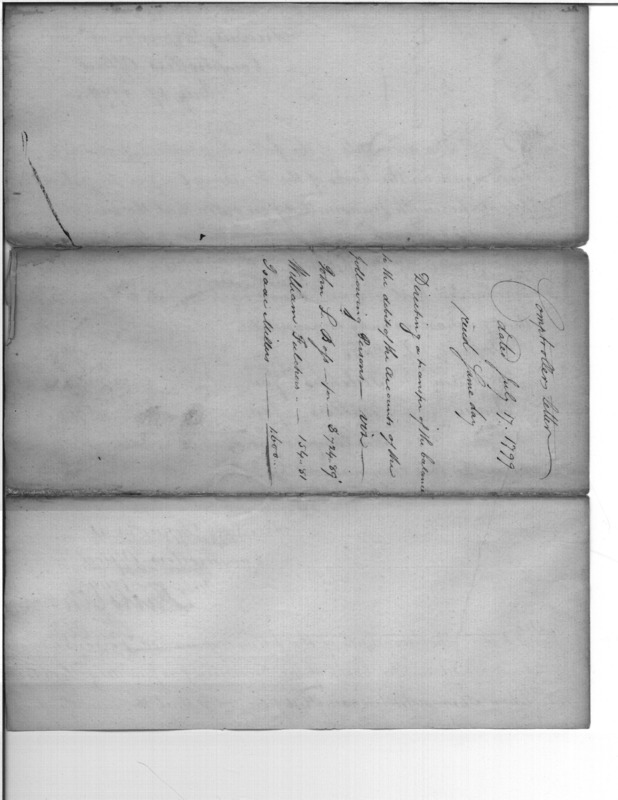 Comptrollers Letter
dated July 17. 1799
recd Same day
Directing a transfer of the balance
to the debit of the Accounts of the
following Persons — viz —
John L Boss — for — 3724.89
William Fulchers — 154.81
Isaac Millers — 1600.